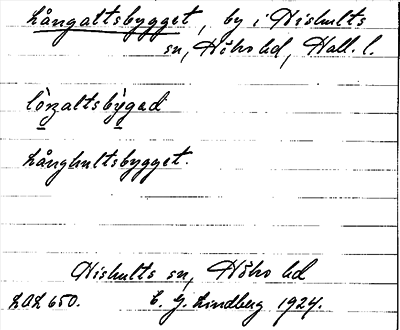 Långaltsbygget, by i Hishults
sn, Höks hd, Hall. l.
Långhultsbygget.
Hishults sn, Höks hd
LAL 650. E. G. Lindberg 1924.